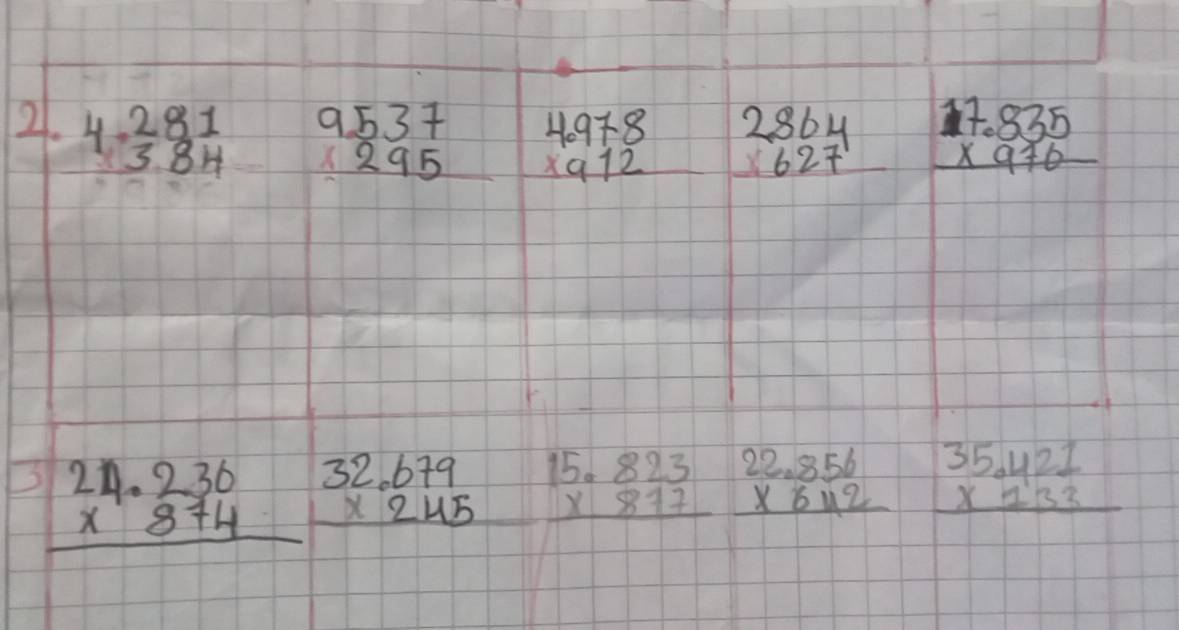 2. 4.281 9.537 4.978 2864 17.835
x 384 x 295 x 912 x 627 x 976
3 24.236 32.679 15.823 22.856 35.421
x 874 x 245 x 877 x 642 x 733